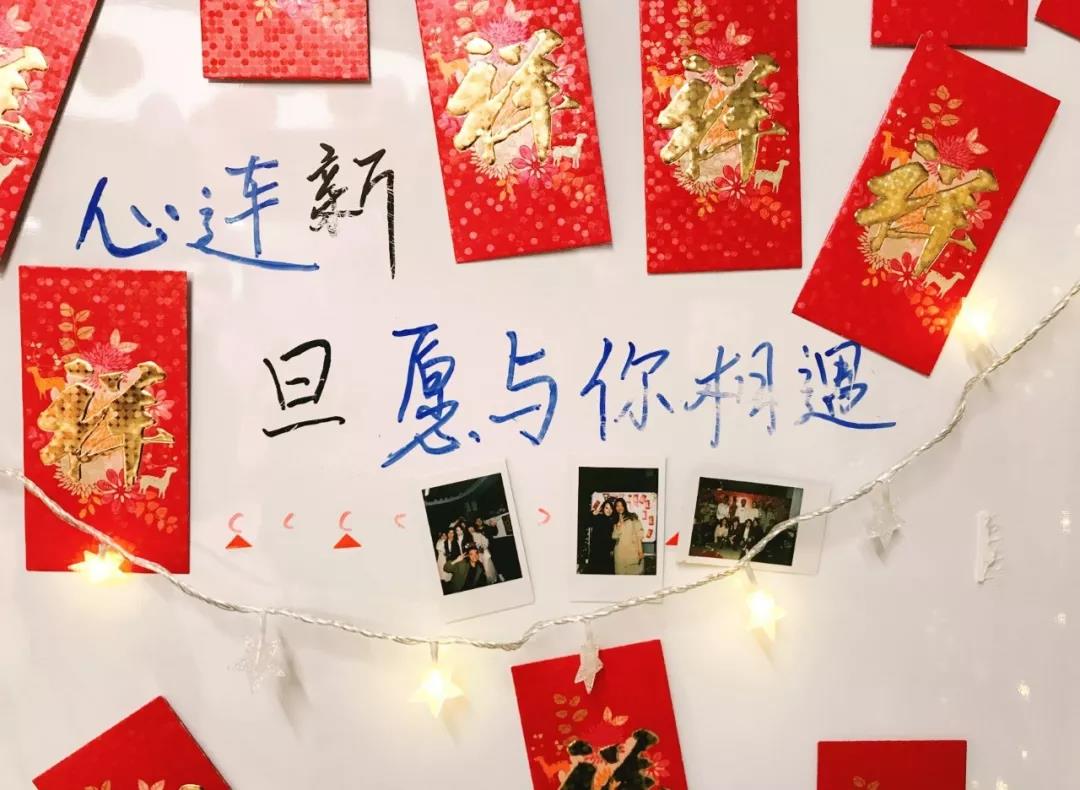 祥
祥
祥
心连新
旦愿与你相遇
祥
祥